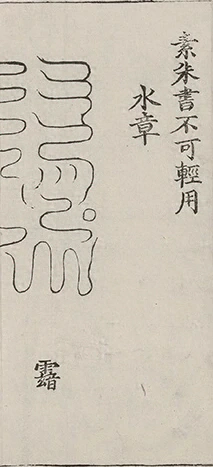 素朱書不可輕用
水章